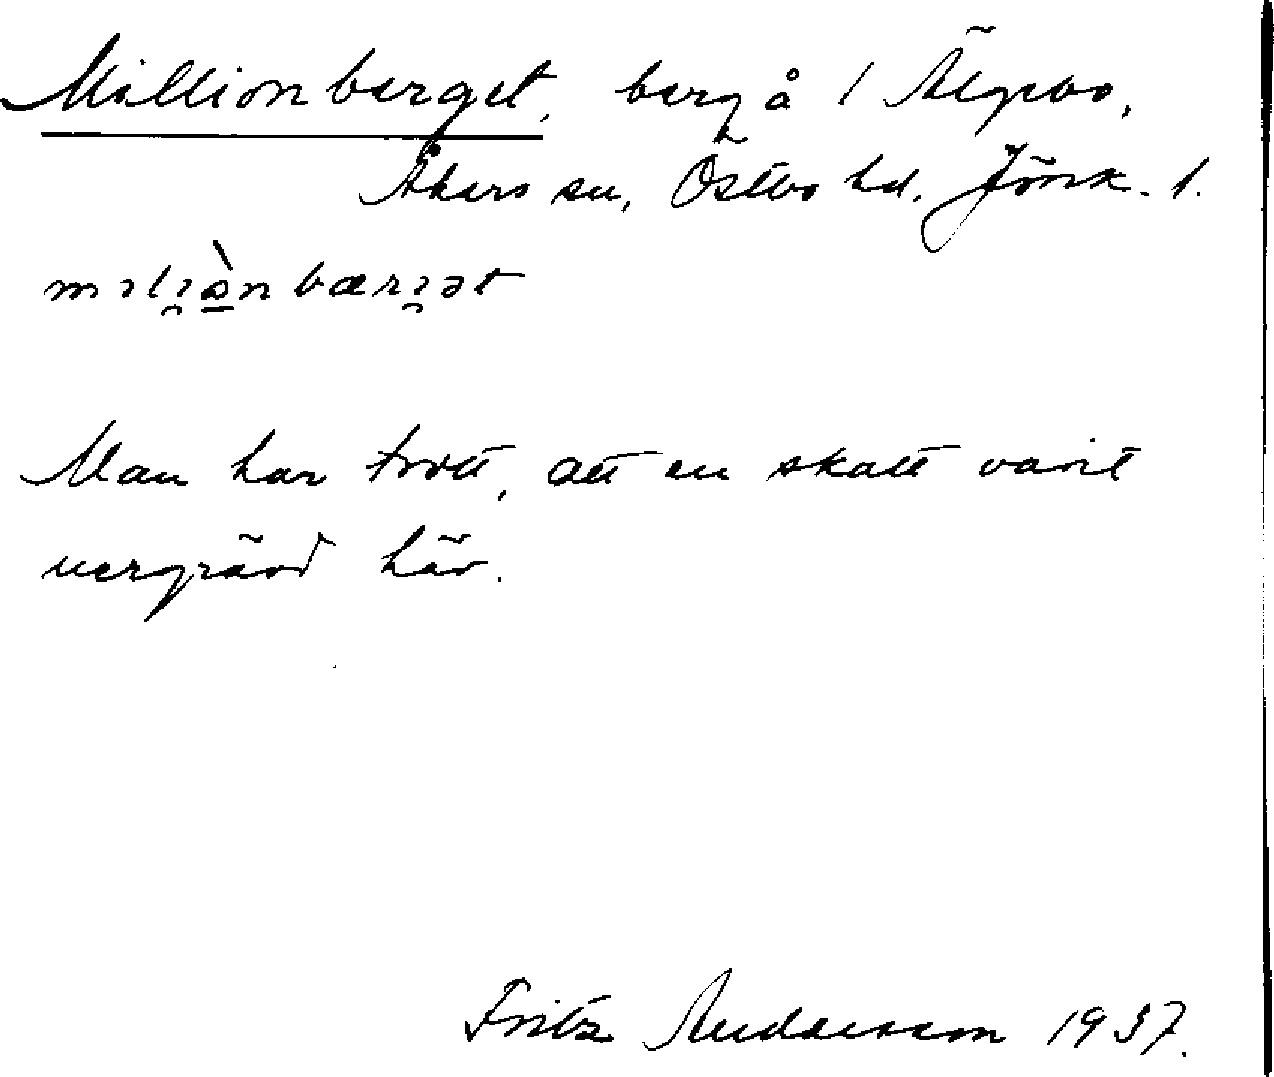 Millionberget, berg å 1 Älgebo,
Åkers sn, Östbo hd, Jönk. l.
mɪlɪ̯ònbærɪ̯ət
Man har trott, att en skatt varit
nergrävd här.
Fritz Andersson 1937.